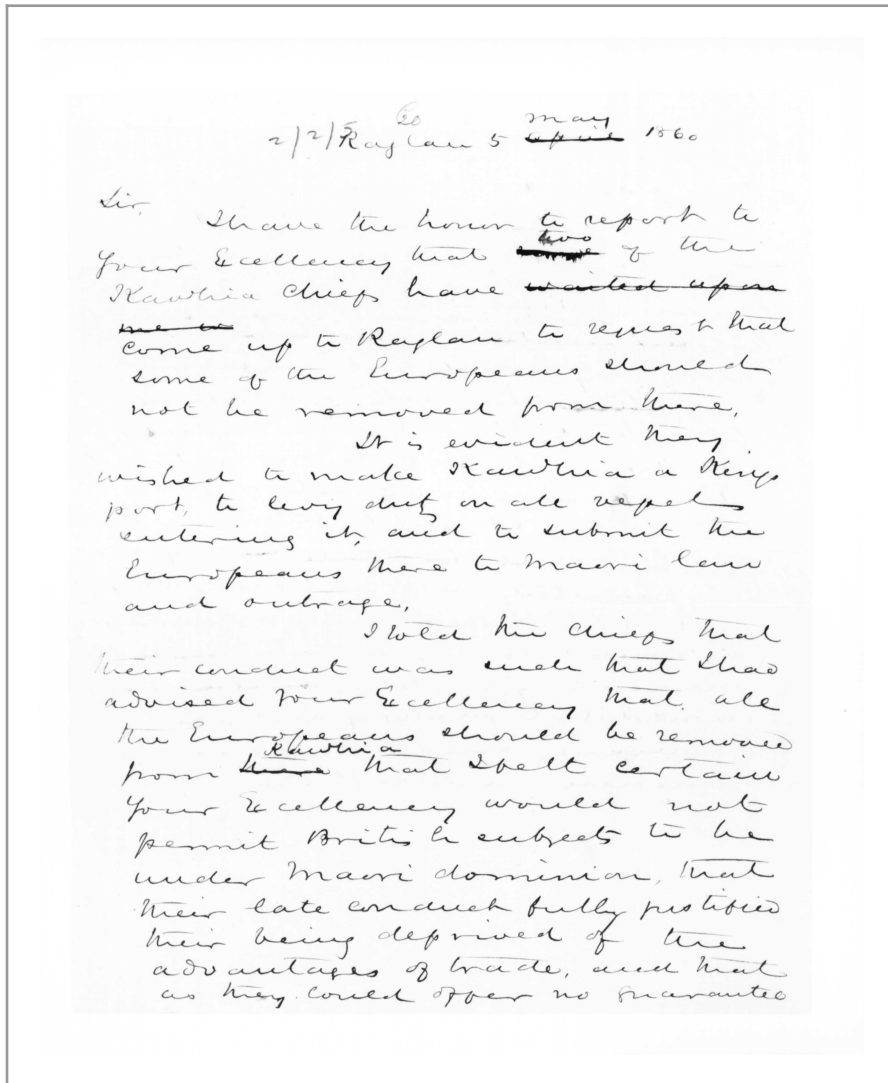 20 May
2/2/5 Raglan 5 April 1860
Sir,
I have the honor to report to
two
Your Excellency that of the
Kawhia Chiefs have waited upon
me
come up to Raglan to request that
some of the Europeans should
not be removed from there.
It is evident they
wished to make Kawhia a Kings
port, to levy duty on all vessels
entering it, and to submit the
Europeans there to Maori law
and outrage.
I told the Chiefs that
their conduct was such that I had
advised Your Excellency that all
the Europeans should be removed
Kawhia
from there that I felt certain
Your Excellency would not
permit British subjects to be
under Maori dominion, that
their late conduct fully justified
their being deprived of the
advantages of trade, and that
as they could offer no guarantee